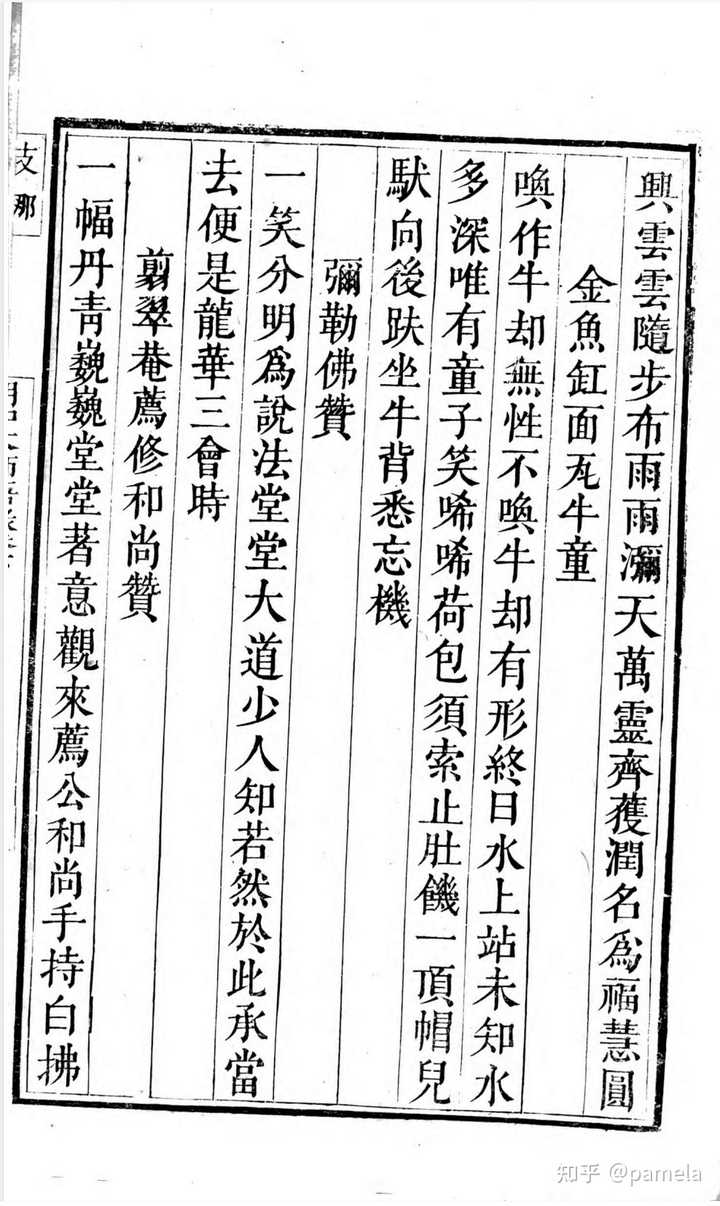 興雲雲隨步布雨雨瀰天萬靈齊獲潤名爲福慧圓
金魚缸面瓦牛童
喚作牛却無性不喚牛却有形終日水上站未知水
多深唯有童子笑唏唏荷包須索止肚饑一頂帽兒
馱向後趺坐牛背悉忘機
彌勒佛贊
一笑分明爲說法堂堂大道少人知若然於此承當
去便是龍華三會時
翦翠菴薦修和尚贊
一幅丹靑巍巍堂堂著意觀來薦公和尚手持白拂
支那
知乎 @pamela